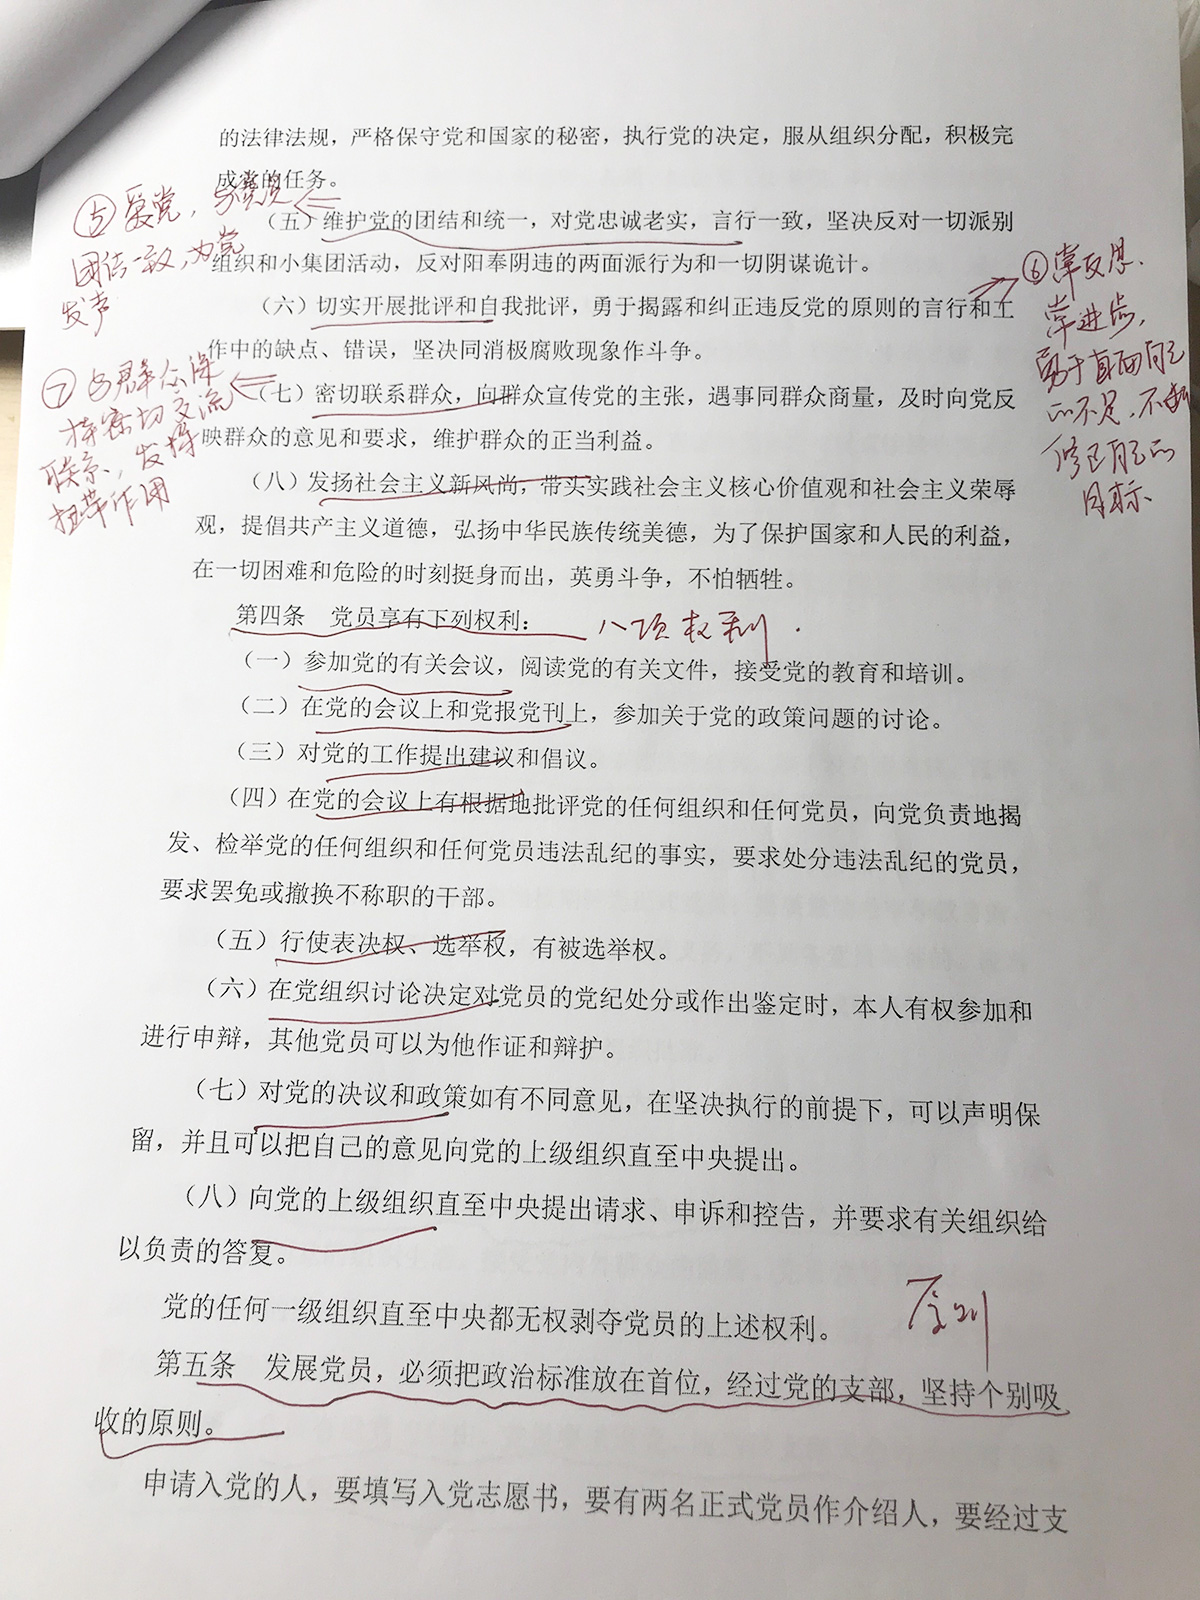 的法律法规，严格保守党和国家的秘密，执行党的决定，服从组织分配，积极完
成党的任务。
⑤爱党，与党员
团结一致，为党
发声
（五）维护党的团结和统一，对党忠诚老实，言行一致，坚决反对一切派别
组织和小集团活动，反对阳奉阴违的两面派行为和一切阴谋诡计。
⑥常反思、
常进步，
勇于直面自己
的不足，不断
修正自己的
目标、
（六）切实开展批评和自我批评，勇于揭露和纠正违反党的原则的言行和工
作中的缺点、错误，坚决同消极腐败现象作斗争。
⑦与群众保
持密切交流
联系，发挥
纽带作用
（七）密切联系群众，向群众宣传党的主张，遇事同群众商量，及时向党反
映群众的意见和要求，维护群众的正当利益。
（八）发扬社会主义新风尚，带头实践社会主义核心价值观和社会主义荣辱
观，提倡共产主义道德，弘扬中华民族传统美德，为了保护国家和人民的利益，
在一切困难和危险的时刻挺身而出，英勇斗争，不怕牺牲。
第四条　党员享有下列权利：　八项权利．
（一）参加党的有关会议，阅读党的有关文件，接受党的教育和培训。
（二）在党的会议上和党报党刊上，参加关于党的政策问题的讨论。
（三）对党的工作提出建议和倡议。
（四）在党的会议上有根据地批评党的任何组织和任何党员，向党负责地揭
发、检举党的任何组织和任何党员违法乱纪的事实，要求处分违法乱纪的党员，
要求罢免或撤换不称职的干部。
（五）行使表决权、选举权，有被选举权。
（六）在党组织讨论决定对党员的党纪处分或作出鉴定时，本人有权参加和
进行申辩，其他党员可以为他作证和辩护。
（七）对党的决议和政策如有不同意见，在坚决执行的前提下，可以声明保
留，并且可以把自己的意见向党的上级组织直至中央提出。
（八）向党的上级组织直至中央提出请求、申诉和控告，并要求有关组织给
以负责的答复。
党的任何一级组织直至中央都无权剥夺党员的上述权利。
原则
第五条　发展党员，必须把政治标准放在首位，经过党的支部，坚持个别吸
收的原则。
申请入党的人，要填写入党志愿书，要有两名正式党员作介绍人，要经过支